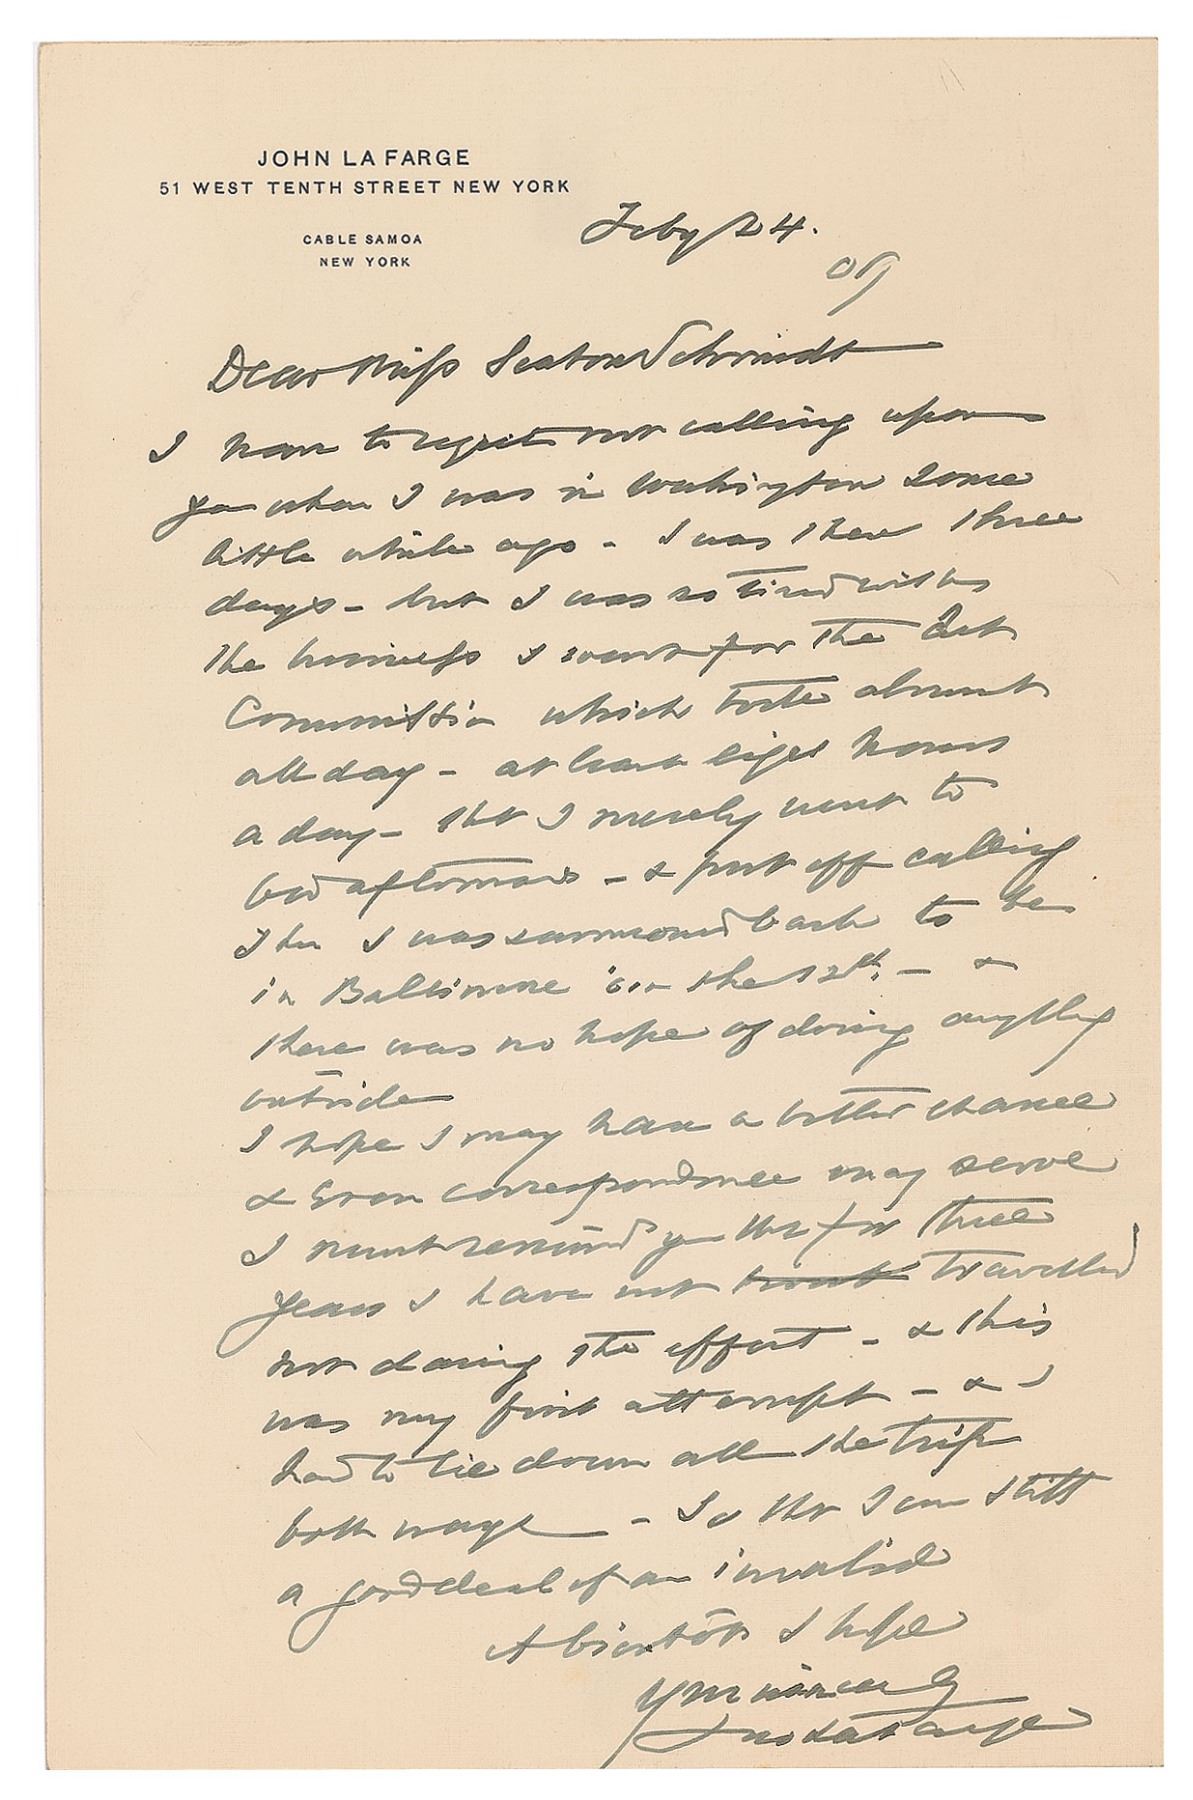 JOHN LA FARGE
51 WEST TENTH STREET NEW YORK
CABLE SAMOA
NEW YORK
Feby 24.
09
Dear Miss Seaton Schmidt
I have to regret not calling upon
you when I was in Washington some
little while ago - I was there three
days - but I was so tired with
the business I went for the Art
Committee which took almost
all day - at least eight hours
a day - that I merely went to
bed afterwards - & put off calling
Then I was summoned back to be
in Baltimore on the 12th. - &
there was no hope of doing anything
outside
I hope I may have a better chance
& Even correspondence may serve
I must remind you that for three
years I have not travelled
not daring the effort - & this
was my first attempt - & I
had to lie down all the trip
both ways - So that I am still
a good deal of an invalid
A bientôt I hope
Yrs sincerely
Jno La Farge